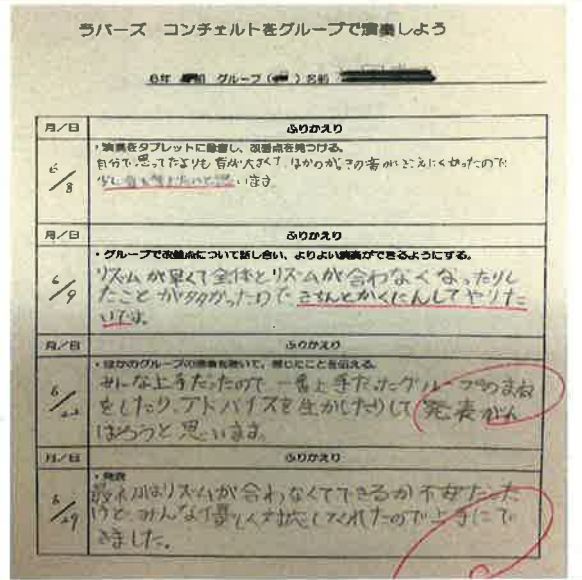 ラバーズ コンチェルトをグループで演奏しよう
6年 グループ( )名前
月/日 ふりかえり
・演奏をタブレットに録音し、改善点を見つける。
6/8
自分で思ってたよりも音が大きくて、ほかのがっきの音がきこえにくかったので
少し音を
います。
月/日 ふりかえり
・グループで改善点について話し合い、よりよい演奏ができるようにする。
6/9
リズムが早くて全体とリズムが合わなくなったりし
たことが多かったので きちんとかくにんしてやりた
いです。
月/日 ふりかえり
・ほかのグループの演奏を聴いて、感じたことを伝える。
みんな上手だったので、一番上手だったグループのまね
をしたり、アドバイスを生かしたりして 発表がん
ばろうと思います。
月/日 ふりかえり
・発表
6/29
最初はリズムが合わなくてできるか不安だった
けど、みんな優しく対応してくれたので上手にで
きました。